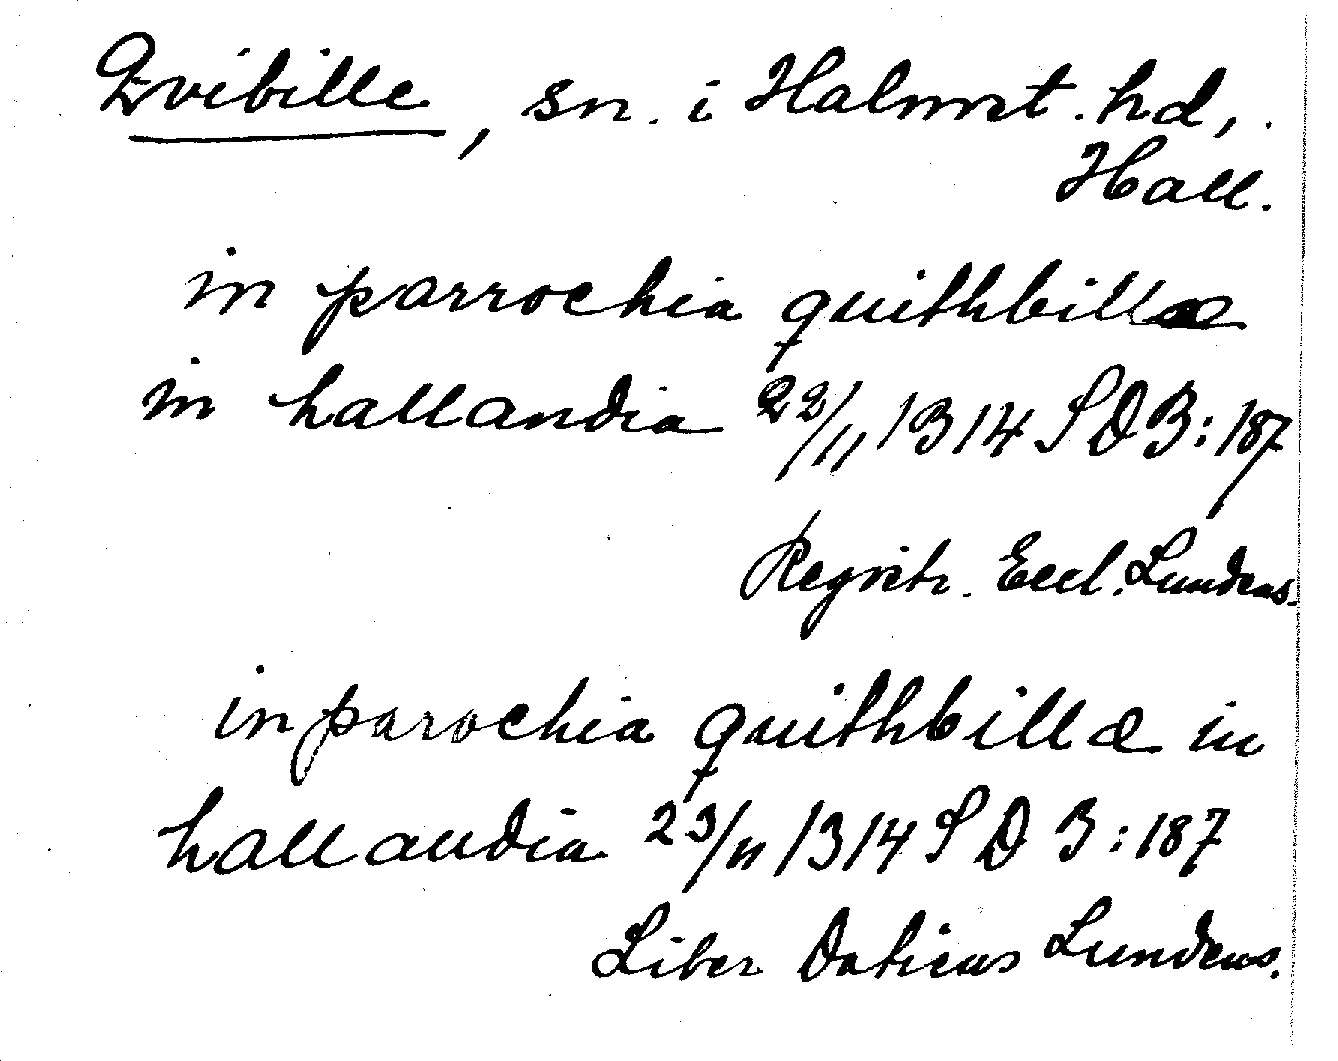 Qvibille, sn. i Halmst. hd,.
Hall.
in parrochia quithbillæ
in hallandia 22/11 1314 SD 3:187
Registr. Eccl. Lundens.
in parochia quithbillæ in
hallandia 23/11 1314 SD 3:187
Liber Daticus Lundens.